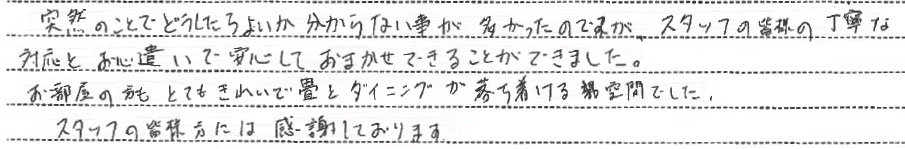 突然のことでどうしたらよいか分からない事が多かったのですが、スタッフの皆様の丁寧な
対応とお心遣いで安心しておまかせできることができました。
お部屋の方もとてもきれいで畳とダイニングが落ち着ける空間でした。
スタッフの皆様方には感謝しております